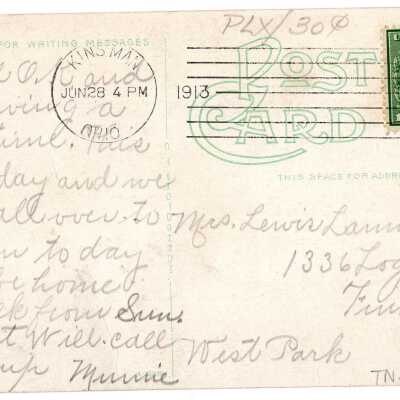 PLX/30¢
FOR WRITING MESSAGES
POST
CARD
KINSMAN
JUN 28 4 PM
1913
OHIO
THIS SPACE FOR ADDR
O.K. and
ving a
time. This
day and we
all over to
n to day
be home
k from Sun.
t Will call
up Minnie
Mrs. Lewis Lann
1336 Log
Fin
West Park
TN-